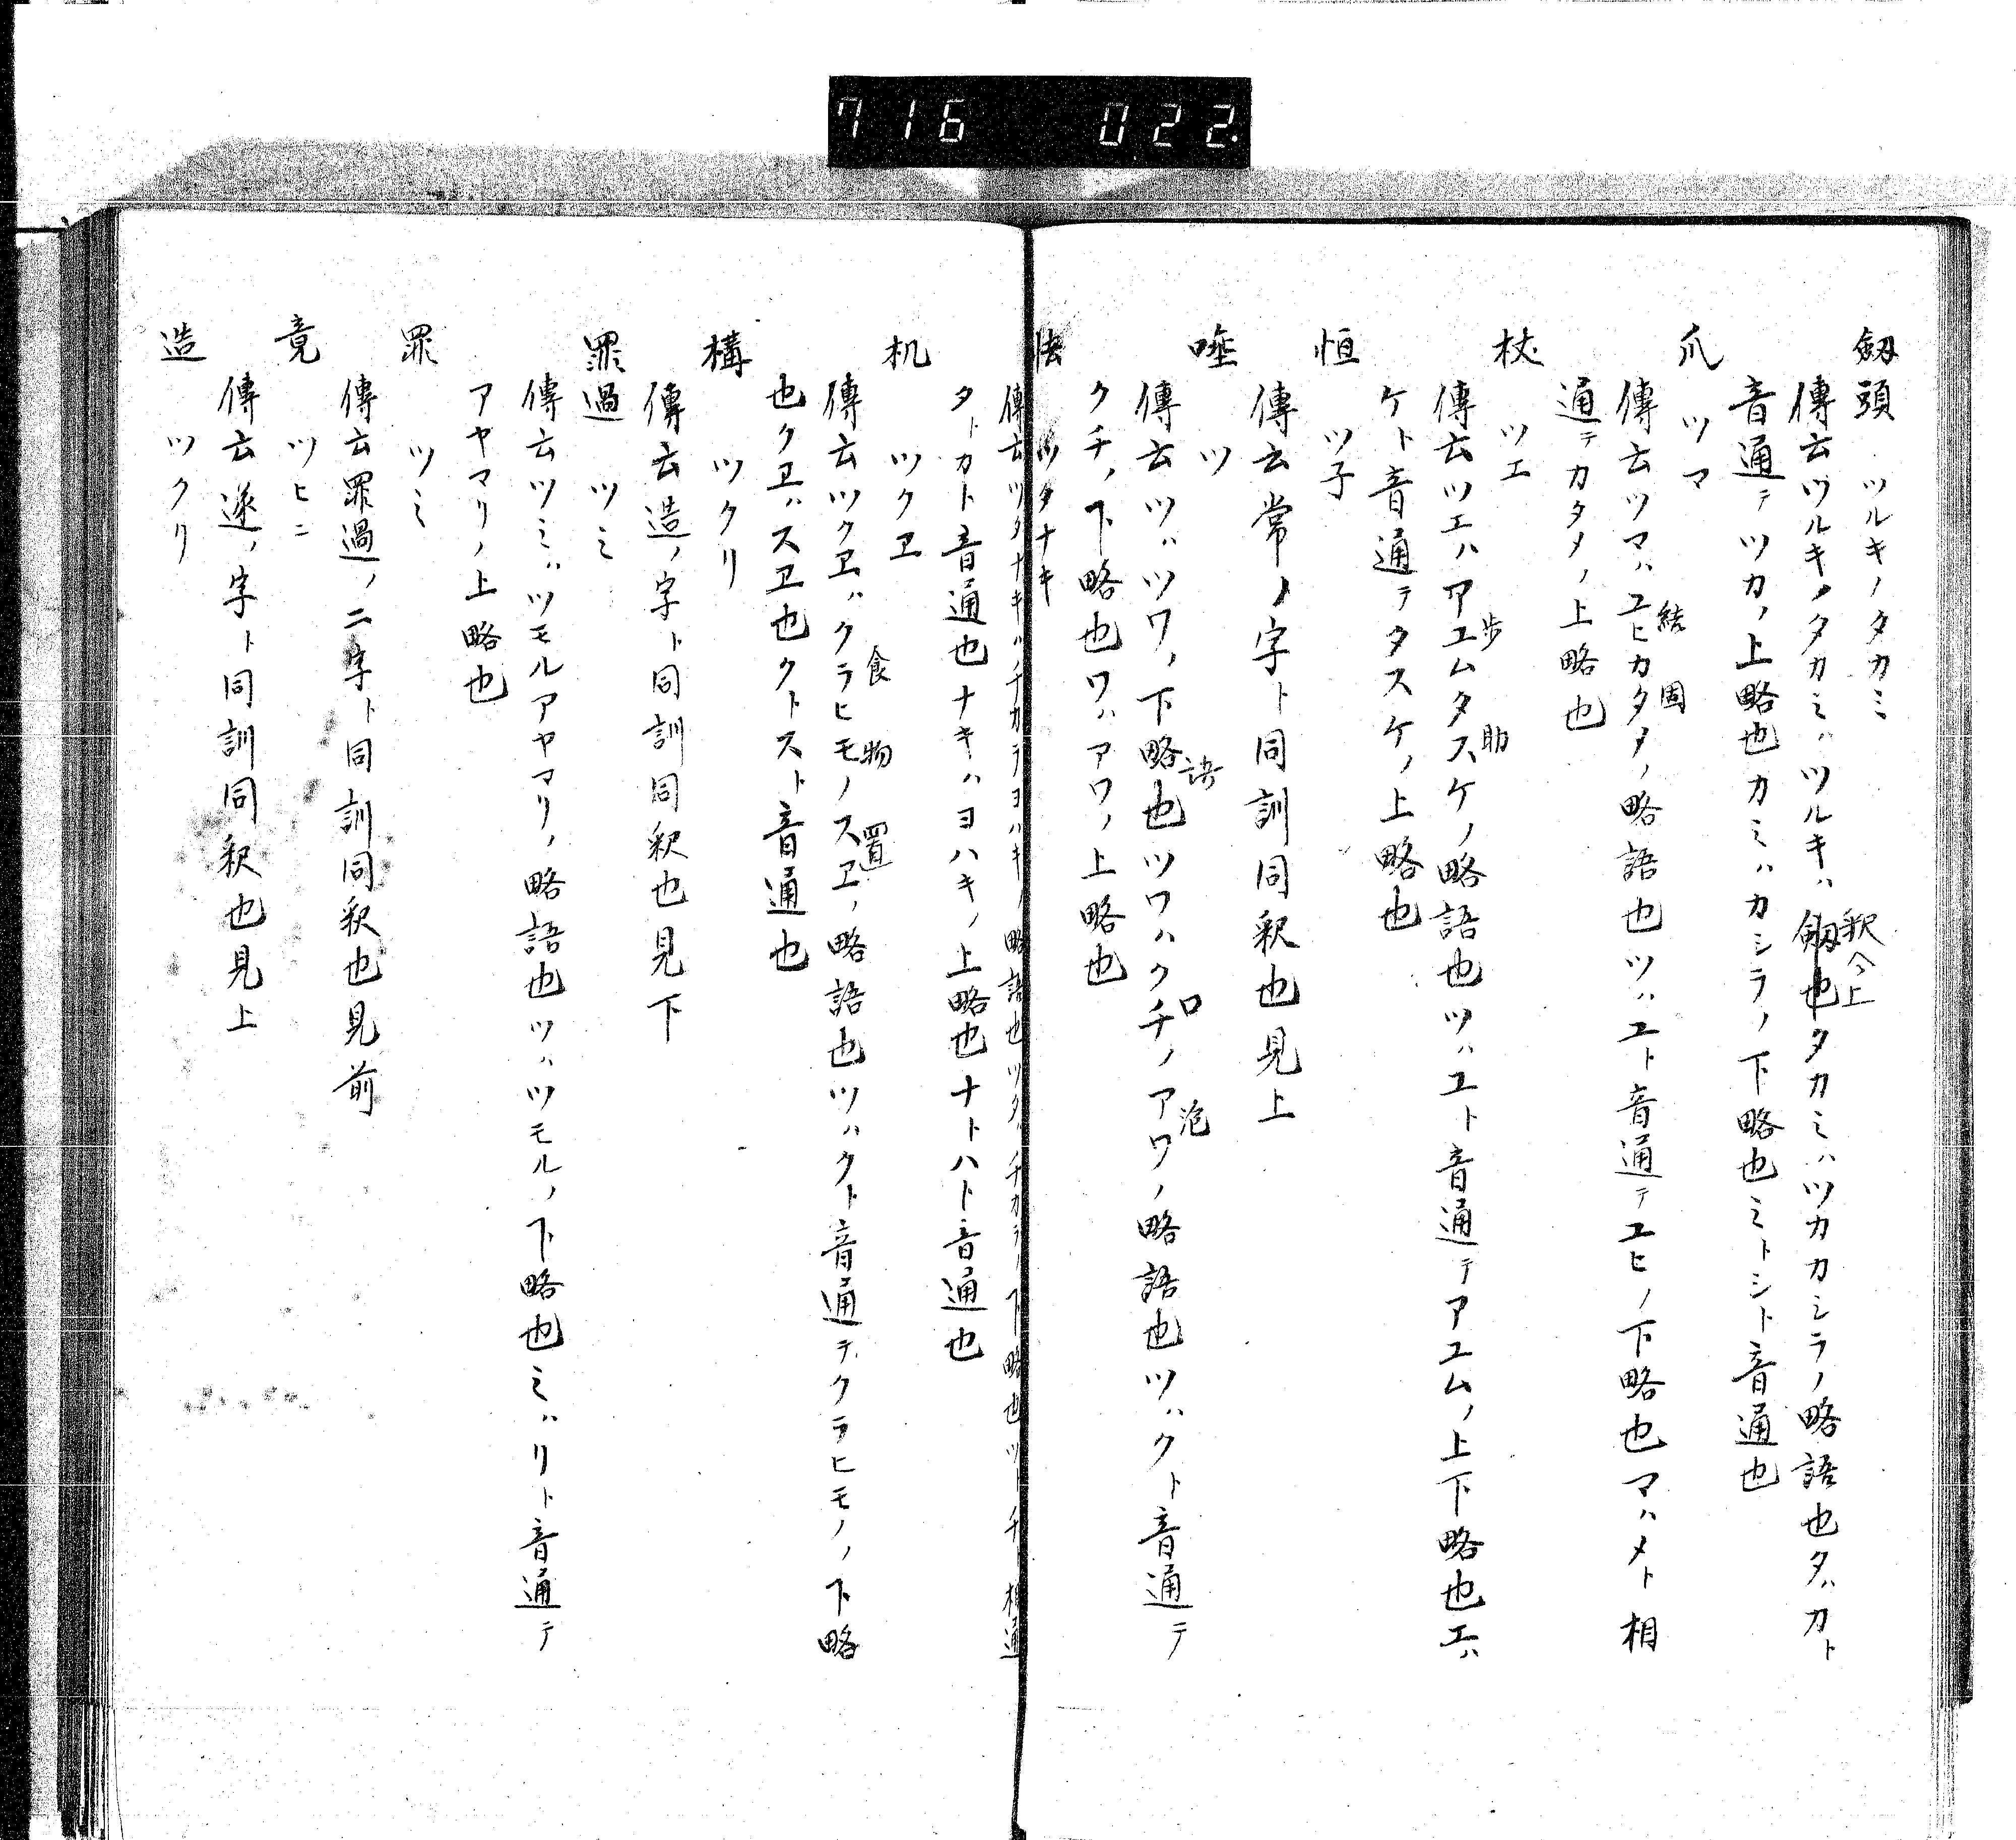 716 022.
劔頭 ツルキノタカミ
傳云ツルキノタカミハツルキハ劔也タカミハツカカシラノ略語也タハカト
釈今上
音通テツカノ上略也カミハカシラノ下略也ミトシト音通也
爪 ツマ
傳云ツマハユヒカタメノ略語也ツハユト音通テユヒノ下略也マハメト相
結 固
通テカタメノ上略也
杖 ツエ
傳云ツエハアユムタスケノ略語也ツハユト音通テアユムノ上下略也エハ
歩 助
ケト音通テタスケノ上略也
恒 ツ子
傳云常ノ字ト同訓同釈也見上
唾 ツ
傳云ツハツワノ下略也ツワハクチノアワノ略語也ツハクト音通テ
語 口 泡
クチノ下略也ワハアワノ上略也
怯 ツタナキ
傳云ツタナキハチカラヨハキノ略語也ツタハチカラノ下略也ツトチ相通
タトカト音通也ナキハヨハキノ上略也ナトハト音通也
机 ツクヱ
傳云ツクヱハクラヒモノスヱノ略語也ツハクト音通テクラヒモノノ下略
食 物 置
也クヱハスヱ也クトスト音通也
構 ツクリ
傳云造ノ字ト同訓同釈也見下
罪過 ツミ
傳云ツミハツモルアヤマリノ略語也ツハツモルノ下略也ミハリト音通テ
アヤマリノ上略也
罪 ツミ
傳云罪過ノ二字ト同訓同釈也見前
竟 ツヒニ
傳云遂ノ字ト同訓同釈也見上
造 ツクリ